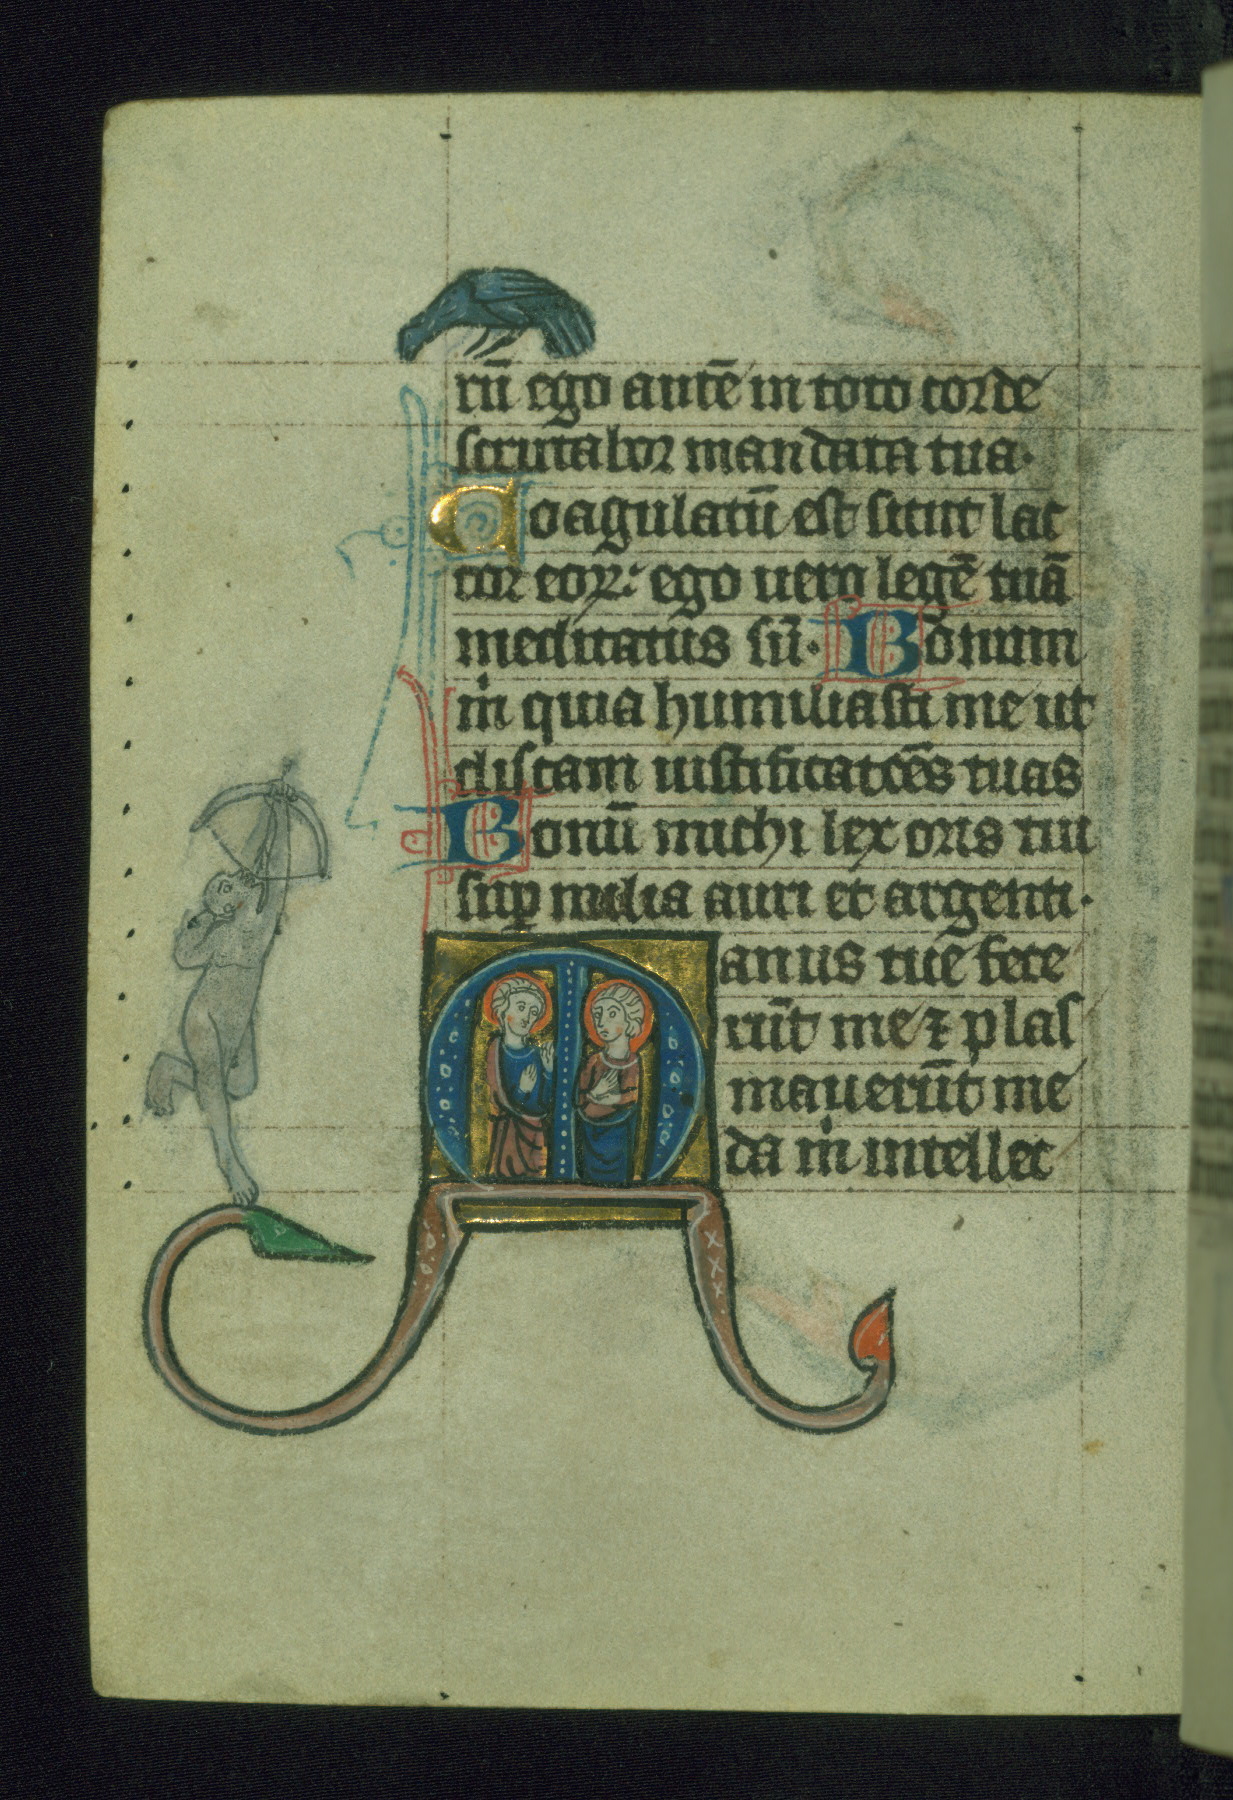 rū ego autē in toto corde
scrutabor mandata tua·
Coagulatū est sicut lac
cor eoꝝ: ego uero legē tuā
meditatus sū· Bonum
m̍ quia humiliasti me ut
discam iustificatōes tuas
Bonū michi lex oris tui
sup milia auri et argenti·
Manus tue fece
rūt me ⁊ plas
mauerūt me
da m̍ intellec